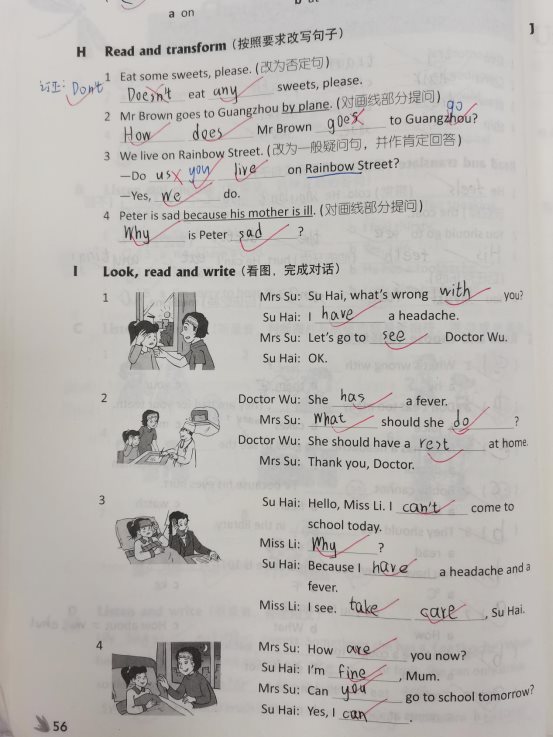 a on
H Read and transform (按照要求改写句子)
1 Eat some sweets, please. (改为否定句)
订正: Don't
Doesn't eat any sweets, please.
2 Mr Brown goes to Guangzhou by plane. (对画线部分提问)
go
How does Mr Brown goes to Guangzhou?
3 We live on Rainbow Street. (改为一般疑问句，并作肯定回答)
—Do us you live on Rainbow Street?
—Yes, we do.
4 Peter is sad because his mother is ill. (对画线部分提问)
Why is Peter sad ?
I Look, read and write (看图，完成对话)
1 Mrs Su: Su Hai, what's wrong with you?
Su Hai: I have a headache.
Mrs Su: Let's go to see Doctor Wu.
Su Hai: OK.
2 Doctor Wu: She has a fever.
Mrs Su: What should she do ?
Doctor Wu: She should have a rest at home.
Mrs Su: Thank you, Doctor.
3 Su Hai: Hello, Miss Li. I can't come to
school today.
Miss Li: Why ?
Su Hai: Because I have a headache and a
fever.
Miss Li: I see. take care , Su Hai.
4 Mrs Su: How are you now?
Su Hai: I'm fine , Mum.
Mrs Su: Can you go to school tomorrow?
Su Hai: Yes, I can .
56